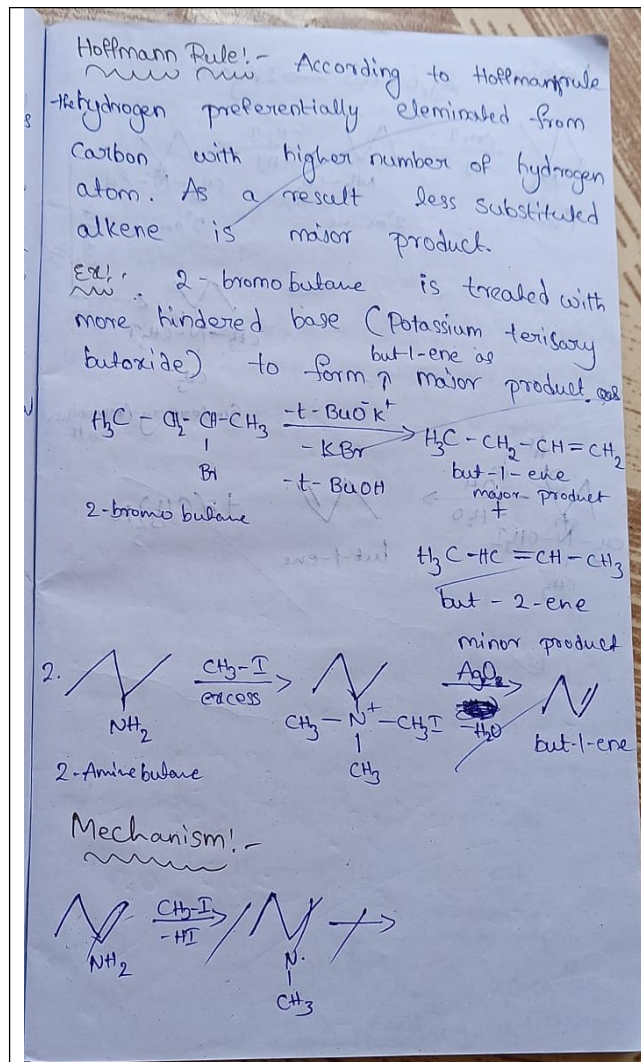 Hoffmann Rule!- According to Hoffmann rule
the hydrogen preferentially eleminated from
Carbon with higher number of hydrogen
atom. As a result less substituted
alkene is major product.
Ex!. 2-bromo butane is treated with
more hindered base (Potassium terisary
butoxide) to form but-1-ene as major product.
H3C - CH2 - CH - CH3 -t-BuO⁻K⁺ H3C - CH2 - CH = CH2
Br -KBr but-1-ene
-t-BuOH major product
2-bromo butane +
H3C - HC = CH - CH3
but - 2-ene
minor product
2. CH3-I AgO2
excess
NH2 CH3 - N⁺ - CH3I -H2O
CH3 but-1-ene
2-Amine butane
Mechanism!-
CH3-I
-HI
NH2 N.
CH3